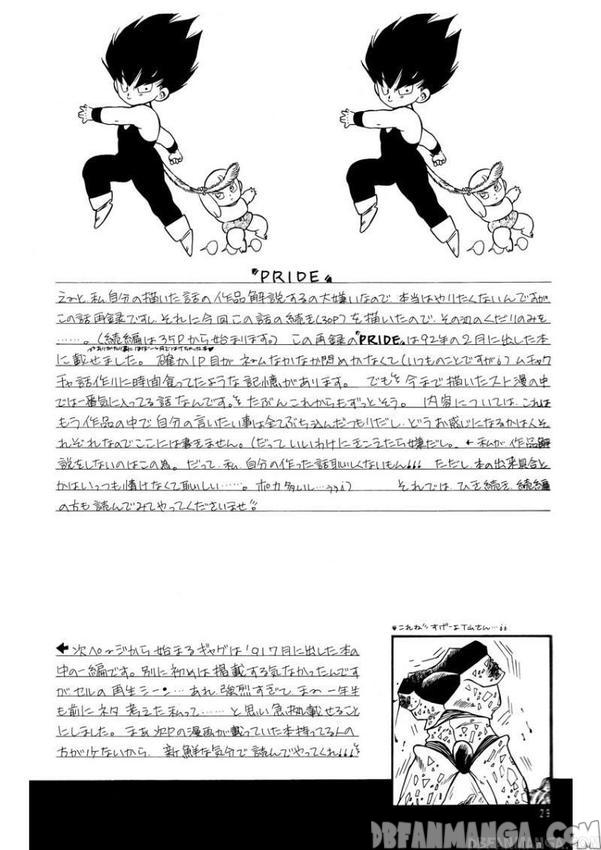 『PRIDE』
えーと、私、自分の描いた話の作品解説するの大嫌いなので、本当はやりたくないんですが
この話再録ですし、それに今回この話の続き(30P)を描いたので、その辺のくだりのみを
……。(続編は35Pから始まります) この再録の『PRIDE』は92年の2月に出した本
に載せました。確か1P目がネームなかなか決めかなくて(いつものことですが)ムチャク
チャ話作りに時間食ってたような記憶があります。でもさ今まで描いたスト漫の中
では一番気に入ってる話なんです。たぶんこれからもずっとそう。内容については、これは
もう作品の中で自分の言いたい事は全てぶち込んだつもりだし、どうお感じになるかはそ
れぞれなのでここには書きません。(だっていいわけにきこえたら嫌だし。←私が作品解
説をしないのはこの為。だって、私、自分の作った話恥しくないもん ただし、本の出来具合と
かはいっつも情けなくて恥しい……。ボカ多いし…) それでは、ひき続き、続編
の方も読んでみてやってくださいませ
←次ページから始まるギャグは'91 7月に出した本の
中の一編です。別に初めは掲載する気なかったんです
がセルの再生シーン…あれ強烈すぎて、まー一年生
も前にネタ考えた私って……と思い急拠載せること
にしました。まぁ次Pの漫画が載っていた本持ってる人の
方が少ないから、新鮮な気分で読んでやってくれ
これね すげーよ T山さん…
29
DBFANMANGA.COM